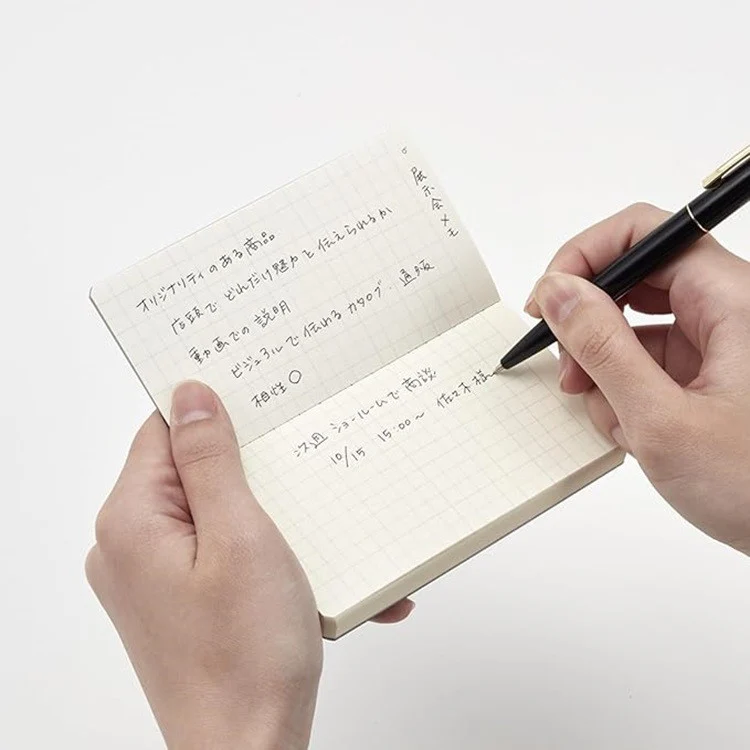 展示会メモ
オリジナリティのある商品
店頭で どれだけ魅力を伝えられるか
動画での説明
ビジュアルで伝わるカタログ 通販
相性〇
次週 ショールームで商談
10/15 15:00〜 佐々木様